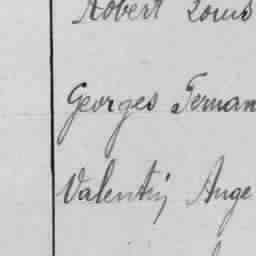 Robert Louis
Georges Fernan
Valentin Ange